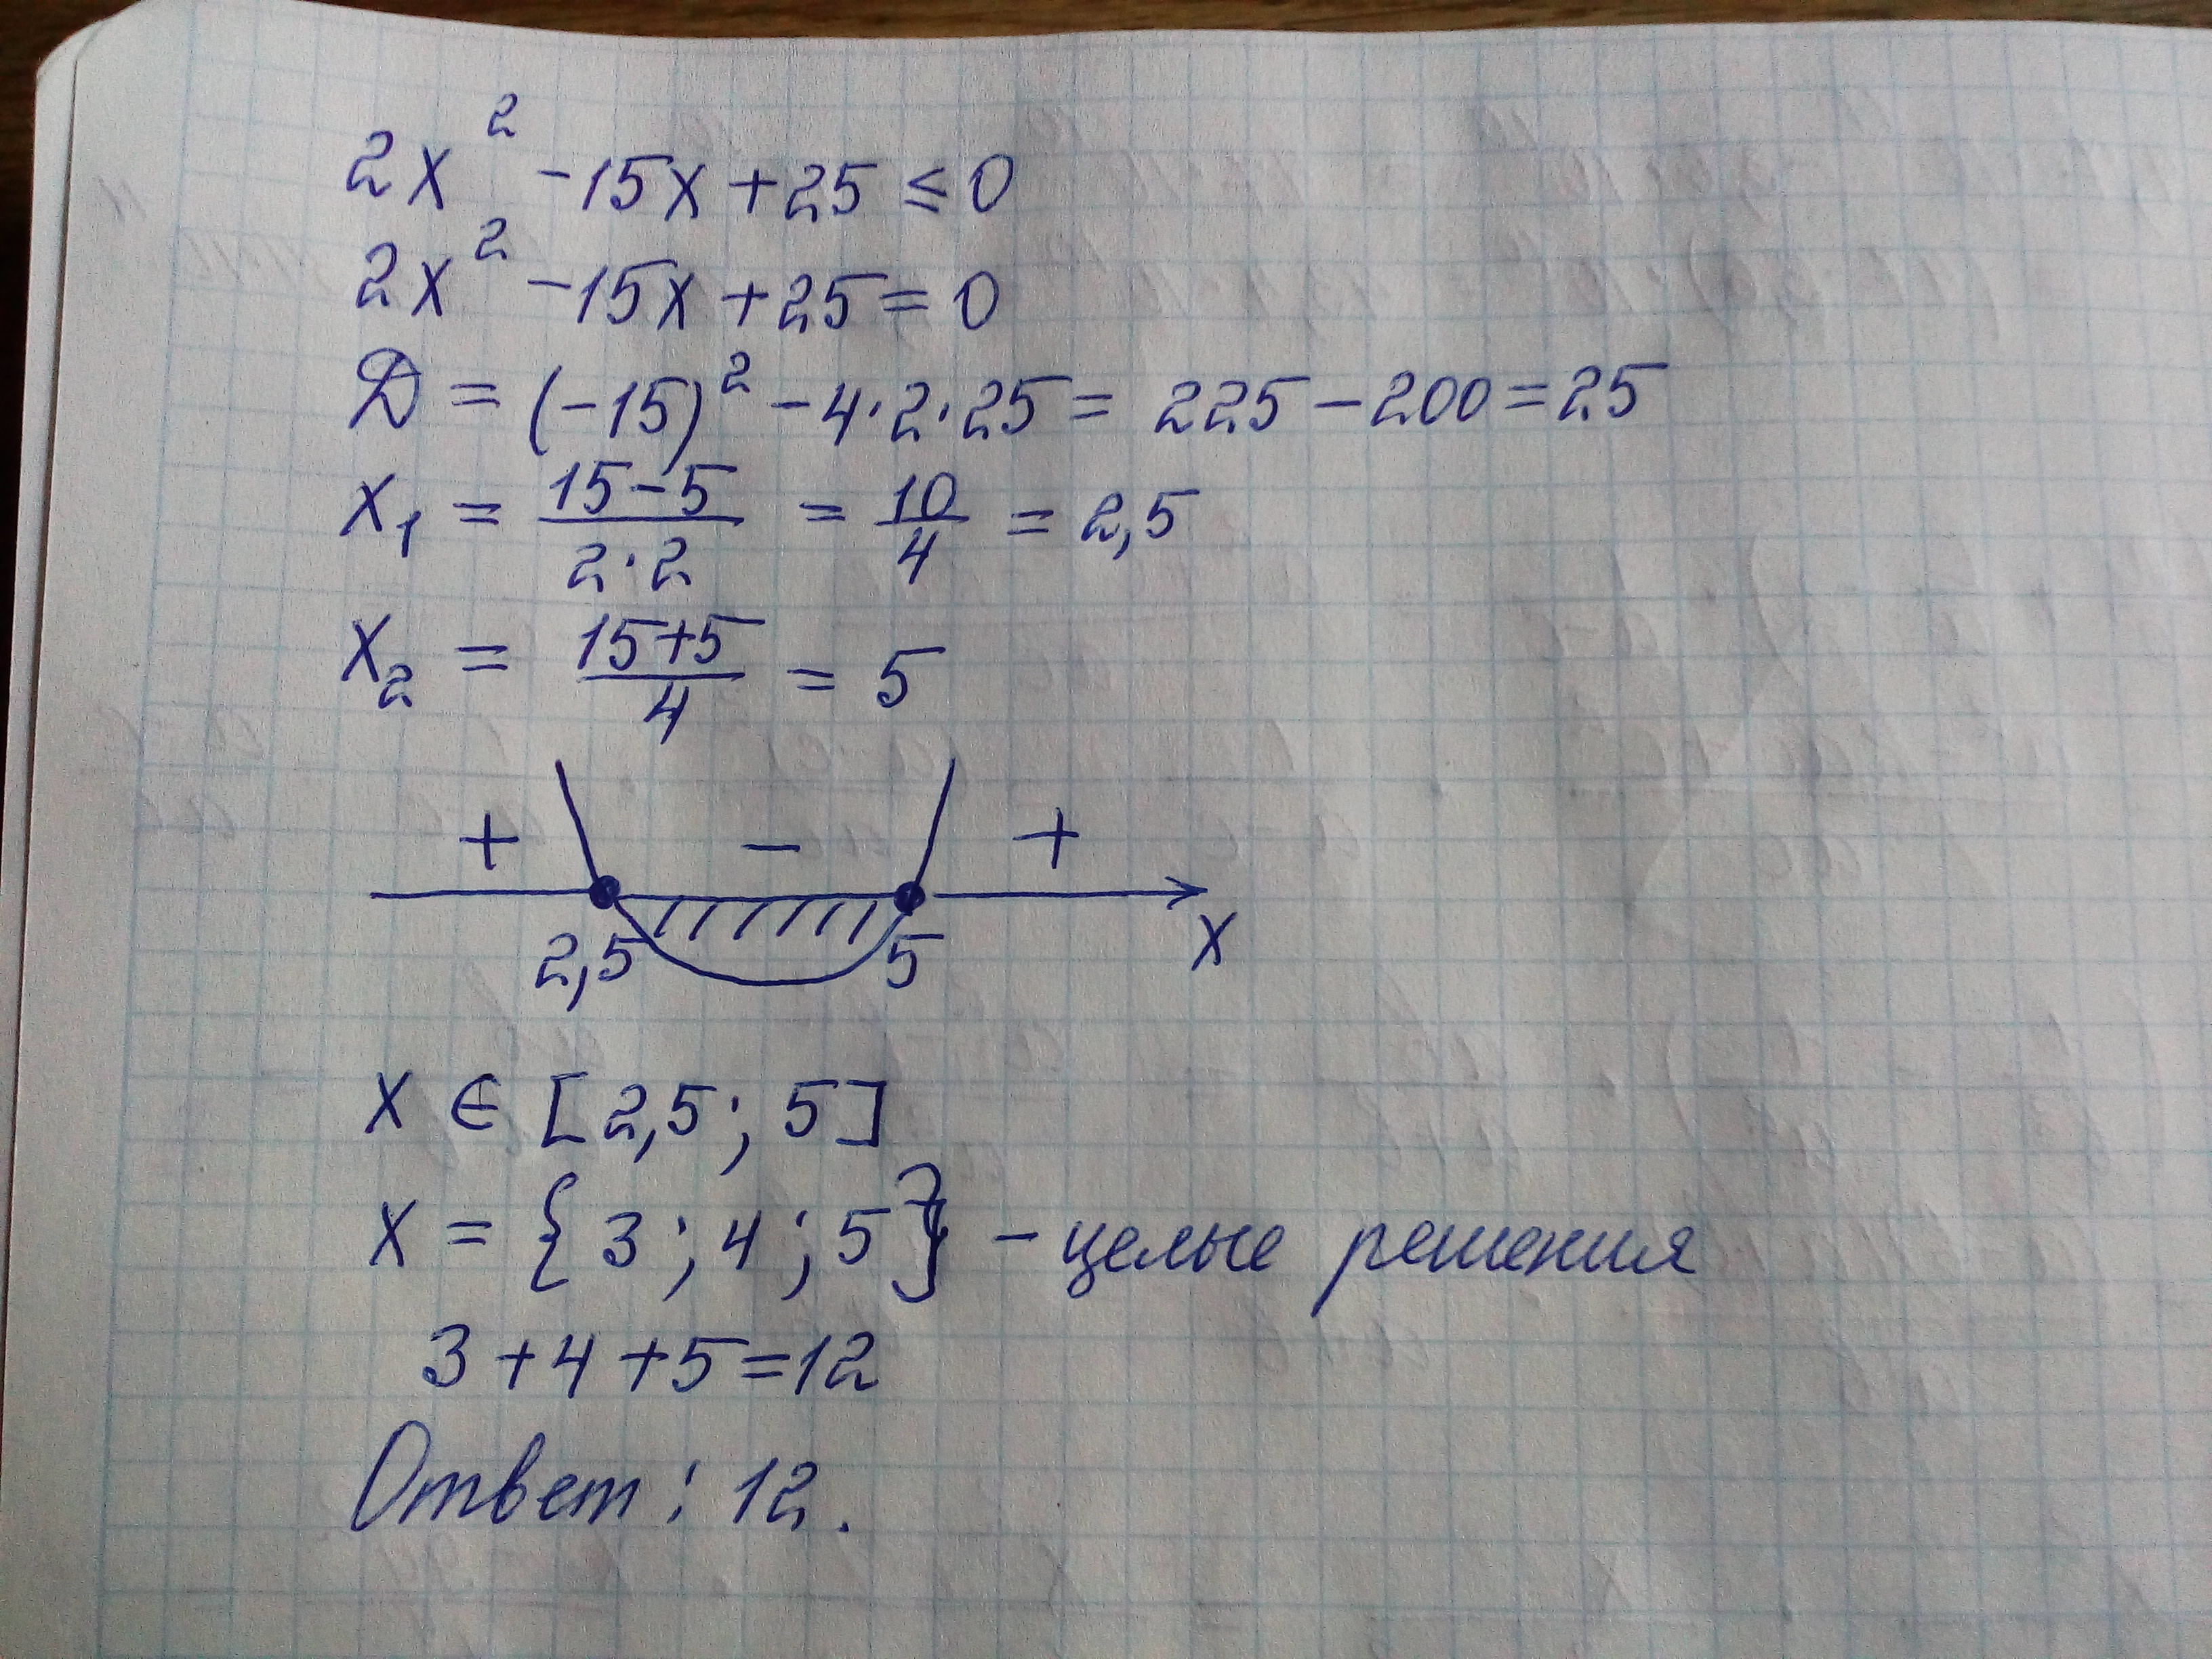 2x² - 15x + 25 ≤ 0
2x² - 15x + 25 = 0
D = (-15)² - 4·2·25 = 225 - 200 = 25
x₁ = (15-5)/(2·2) = 10/4 = 2,5
x₂ = (15+5)/4 = 5
+ - +
2,5 5 x
x ∈ [2,5; 5]
x = {3; 4; 5} - целые решения
3 + 4 + 5 = 12
Ответ: 12.